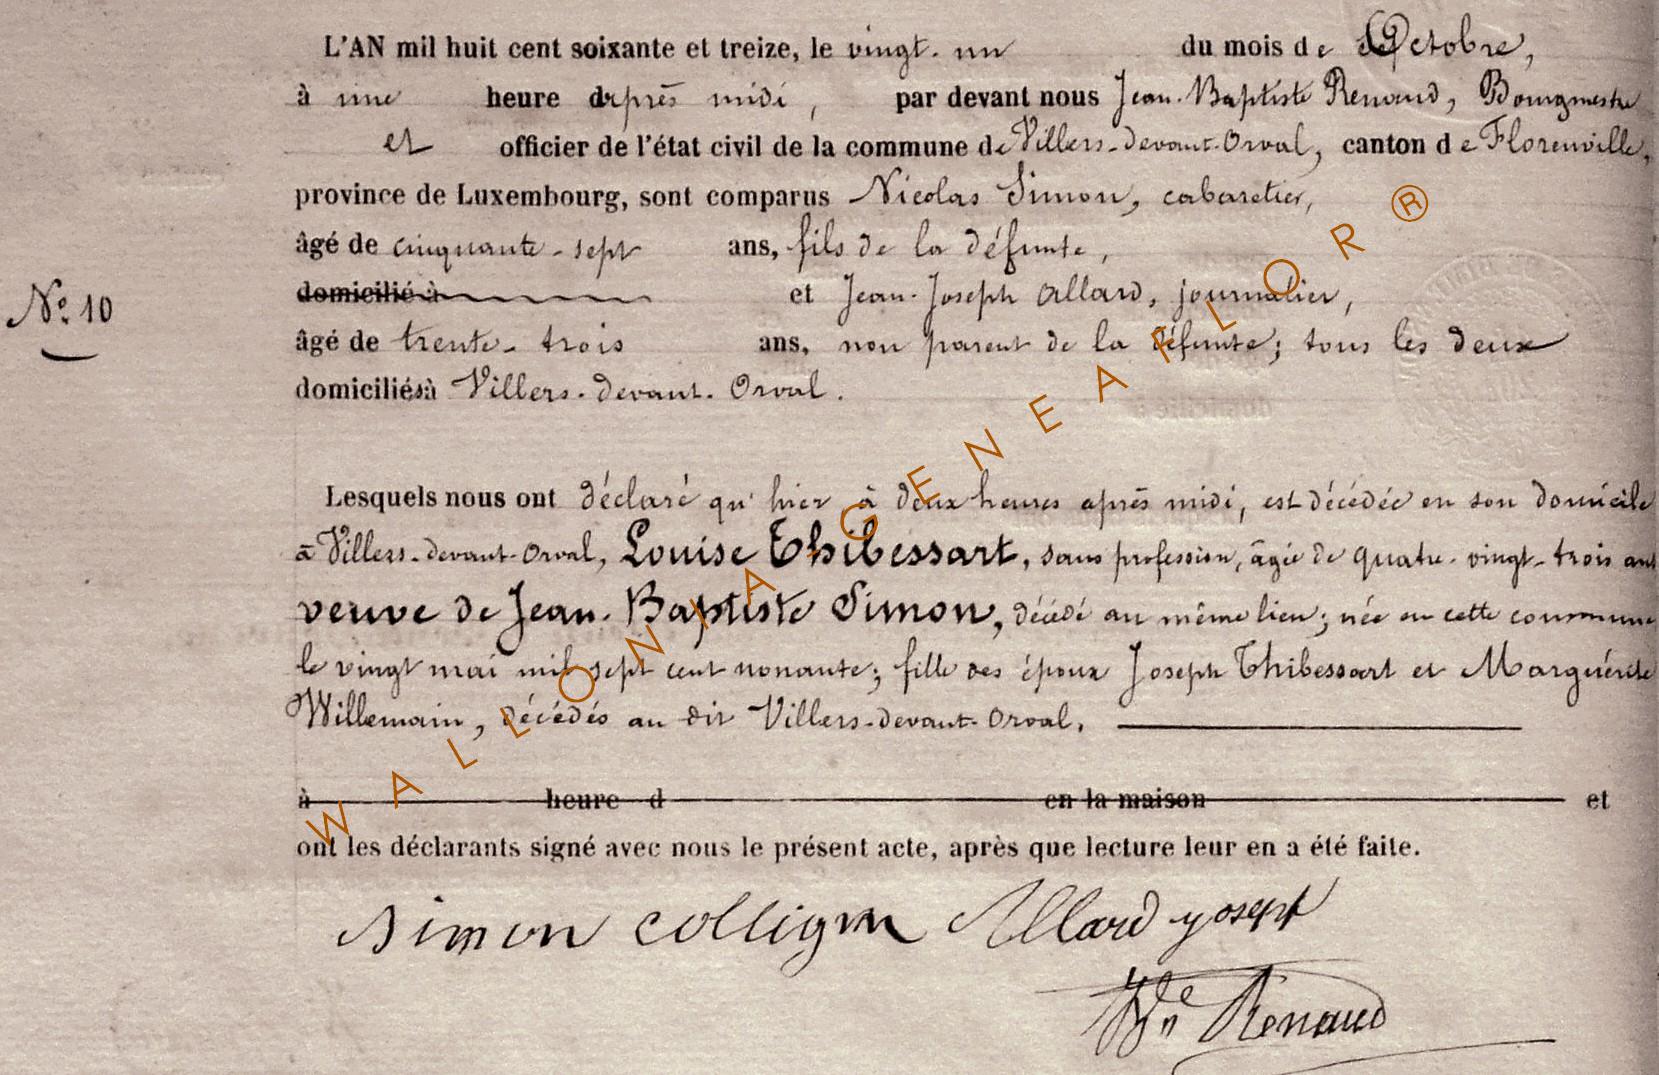 L'AN mil huit cent soixante et treize, le vingt-un du mois de Octobre,
à une heure d'après midi, par devant nous Jean-Baptiste Renaud, Bourgmestre
et officier de l'état civil de la commune de Villers-devant-Orval, canton de Florenville,
province de Luxembourg, sont comparus Nicolas Simon, cabaretier,
âgé de cinquante-sept ans, fils de la défunte,
domicilié à et Jean-Joseph Allard, journalier,
N° 10
âgé de trente-trois ans, non parent de la défunte; tous les deux
domiciliés à Villers-devant-Orval.
Lesquels nous ont déclaré qu'hier à deux heures après midi, est décédée en son domicile
à Villers-devant-Orval, Louise Thibessart, sans profession, âgée de quatre-vingt-trois ans
veuve de Jean-Baptiste Simon, décédé au même lieu; née en cette commune
le vingt mai mil sept cent nonante; fille des époux Joseph Thibessart et Marguérite
Willemain, décédés au dit Villers-devant-Orval.
à heure d en la maison et
ont les déclarants signé avec nous le présent acte, après que lecture leur en a été faite.
Simon Collignon Allard Joseph
Renaud
WALLONIA-GENEAFLOR®